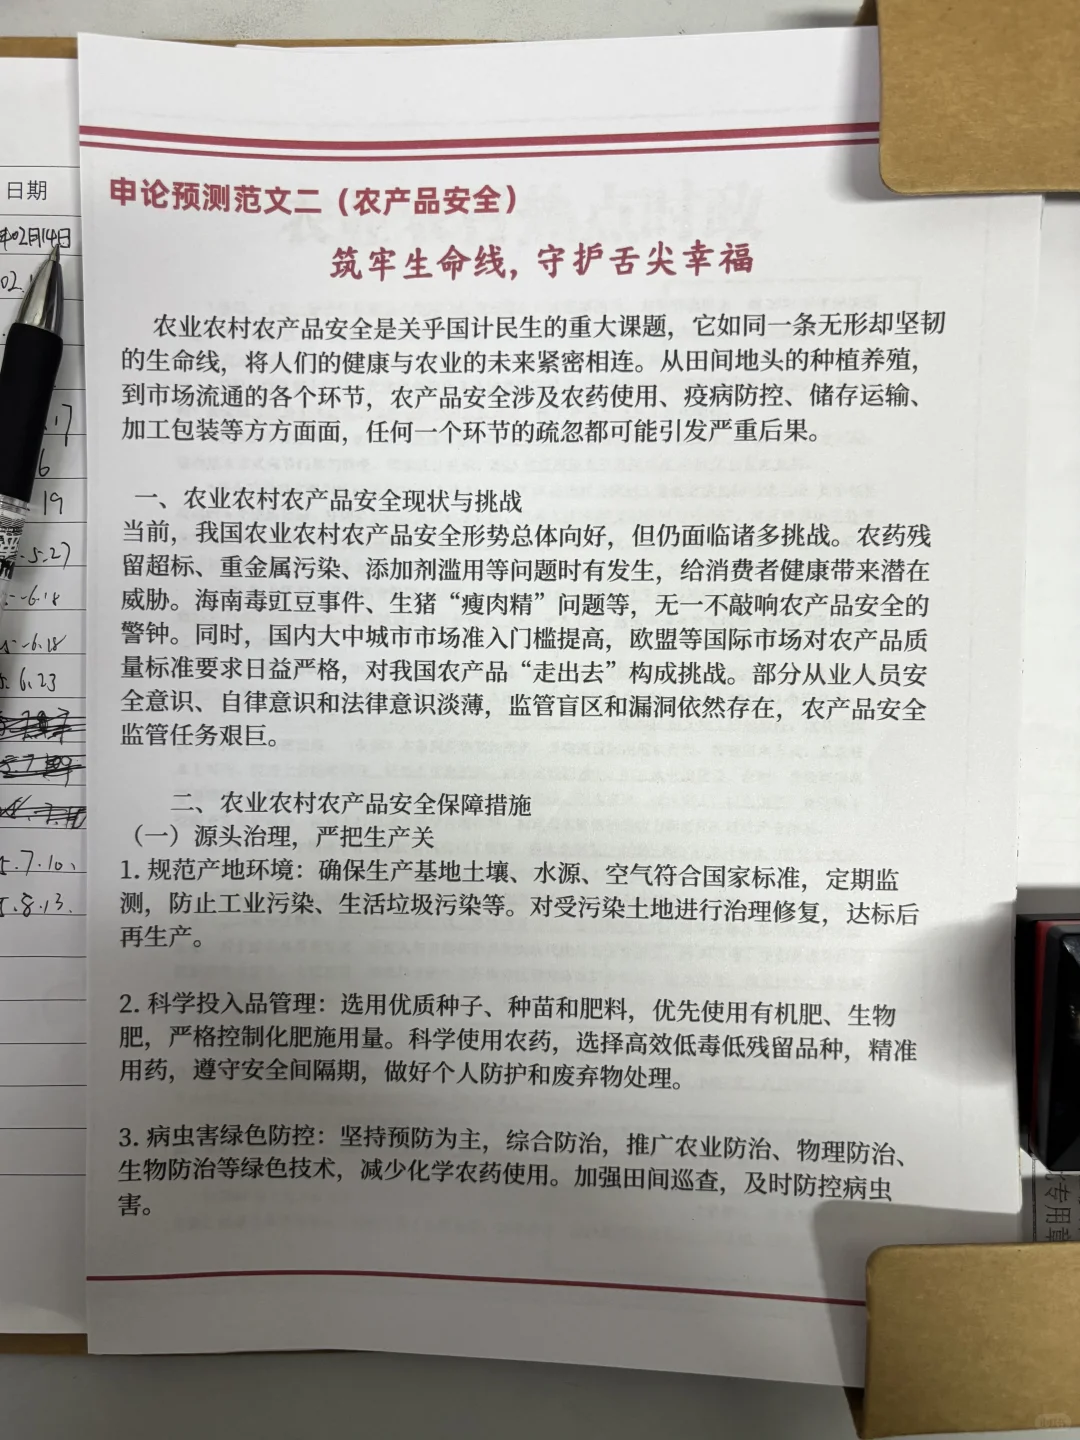 日期
年02月14日
02.
17
6
19
5.27
6.18
5-6.18
5.6.23
5.7.10.
5.8.13.
申论预测范文二（农产品安全）
筑牢生命线，守护舌尖幸福
农业农村农产品安全是关乎国计民生的重大课题，它如同一条无形却坚韧
的生命线，将人们的健康与农业的未来紧密相连。从田间地头的种植养殖，
到市场流通的各个环节，农产品安全涉及农药使用、疫病防控、储存运输、
加工包装等方方面面，任何一个环节的疏忽都可能引发严重后果。
一、农业农村农产品安全现状与挑战
当前，我国农业农村农产品安全形势总体向好，但仍面临诸多挑战。农药残
留超标、重金属污染、添加剂滥用等问题时有发生，给消费者健康带来潜在
威胁。海南毒豇豆事件、生猪“瘦肉精”问题等，无一不敲响农产品安全的
警钟。同时，国内大中城市市场准入门槛提高，欧盟等国际市场对农产品质
量标准要求日益严格，对我国农产品“走出去”构成挑战。部分从业人员安
全意识、自律意识和法律意识淡薄，监管盲区和漏洞依然存在，农产品安全
监管任务艰巨。
二、农业农村农产品安全保障措施
（一）源头治理，严把生产关
1. 规范产地环境：确保生产基地土壤、水源、空气符合国家标准，定期监
测，防止工业污染、生活垃圾污染等。对受污染土地进行治理修复，达标后
再生产。
2. 科学投入品管理：选用优质种子、种苗和肥料，优先使用有机肥、生物
肥，严格控制化肥施用量。科学使用农药，选择高效低毒低残留品种，精准
用药，遵守安全间隔期，做好个人防护和废弃物处理。
3. 病虫害绿色防控：坚持预防为主，综合防治，推广农业防治、物理防治、
生物防治等绿色技术，减少化学农药使用。加强田间巡查，及时防控病虫
害。
专用章